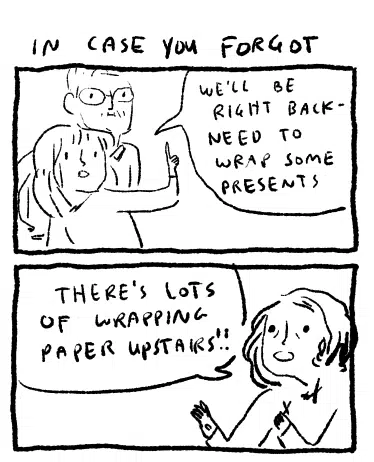 IN CASE YOU FORGOT
WE'LL BE
RIGHT BACK-
NEED TO
WRAP SOME
PRESENTS
THERE'S LOTS
OF WRAPPING
PAPER UPSTAIRS!!